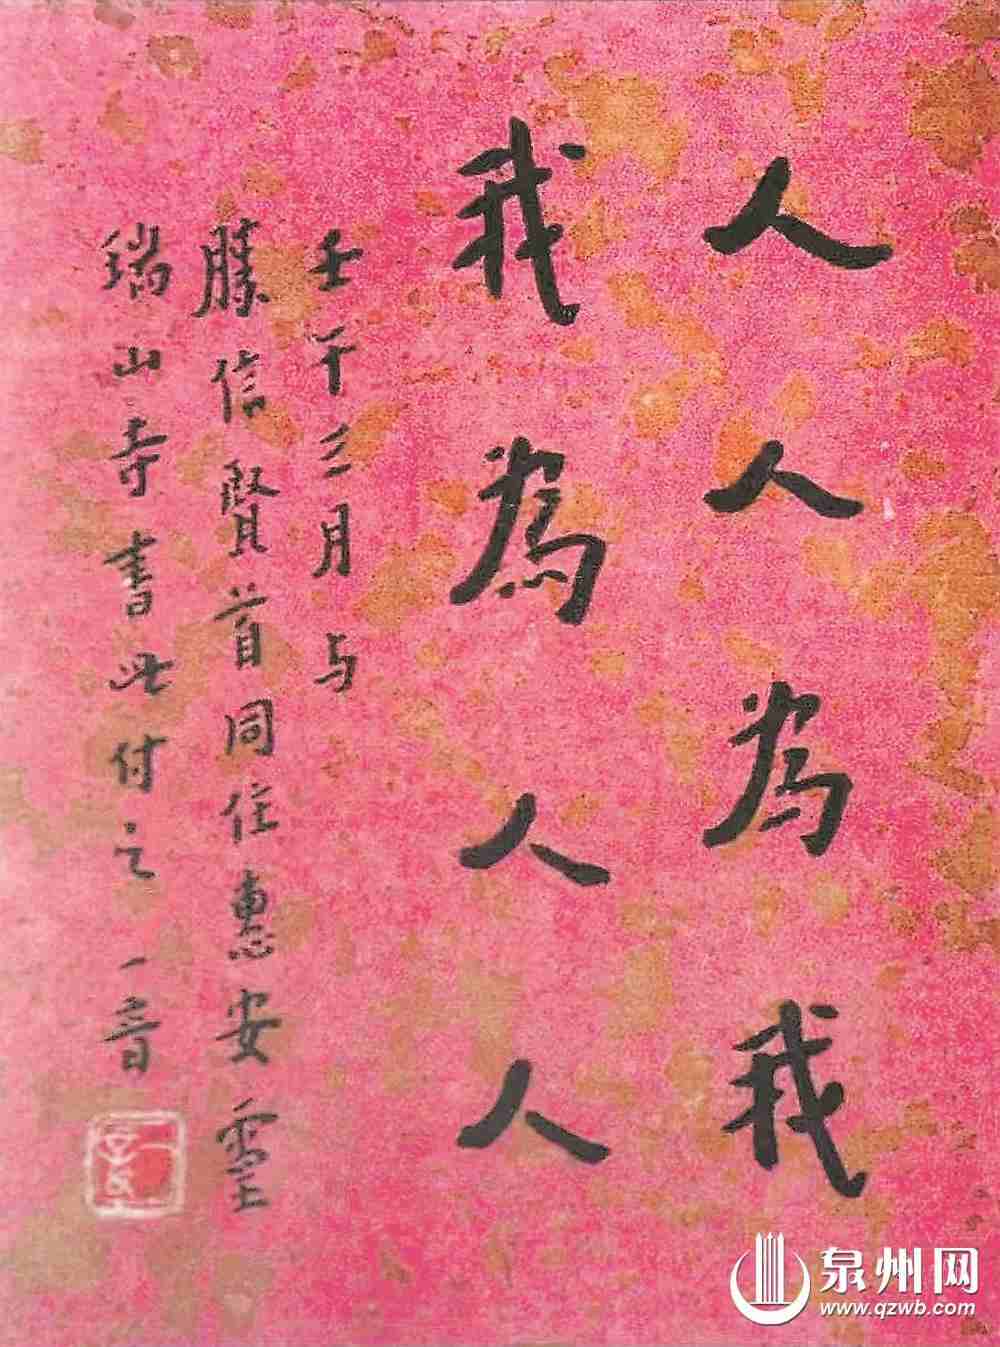 人人為我
我為人人
壬午三月与
勝信賢首同住惠安靈
瑞山寺書此付之一音
泉州网
www.qzwb.com